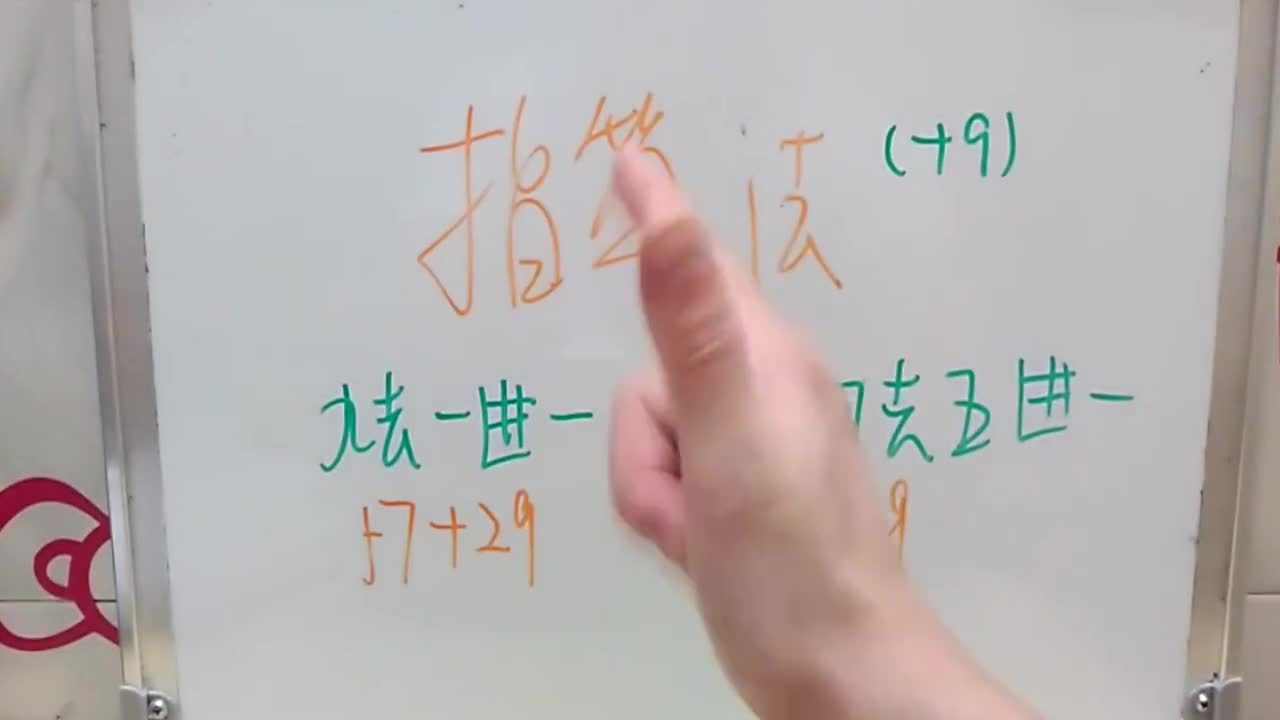 指算法 (+9)
九去一进一 去五进一
57+29 9